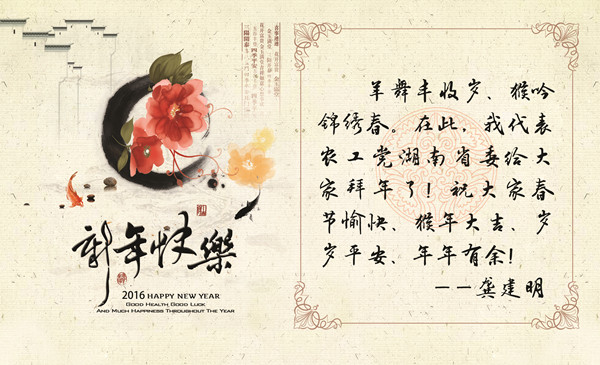 新年快樂
2016 HAPPY NEW YEAR
GOOD HEALTH, GOOD LUCK
AND MUCH HAPPINESS THROUGHOUT THE YEAR
羊舞丰收岁、猴吟
锦绣春。在此，我代表
农工党湖南省委给大
家拜年了！祝大家春
节愉快、猴年大吉、岁
岁平安、年年有余！
——龚建明